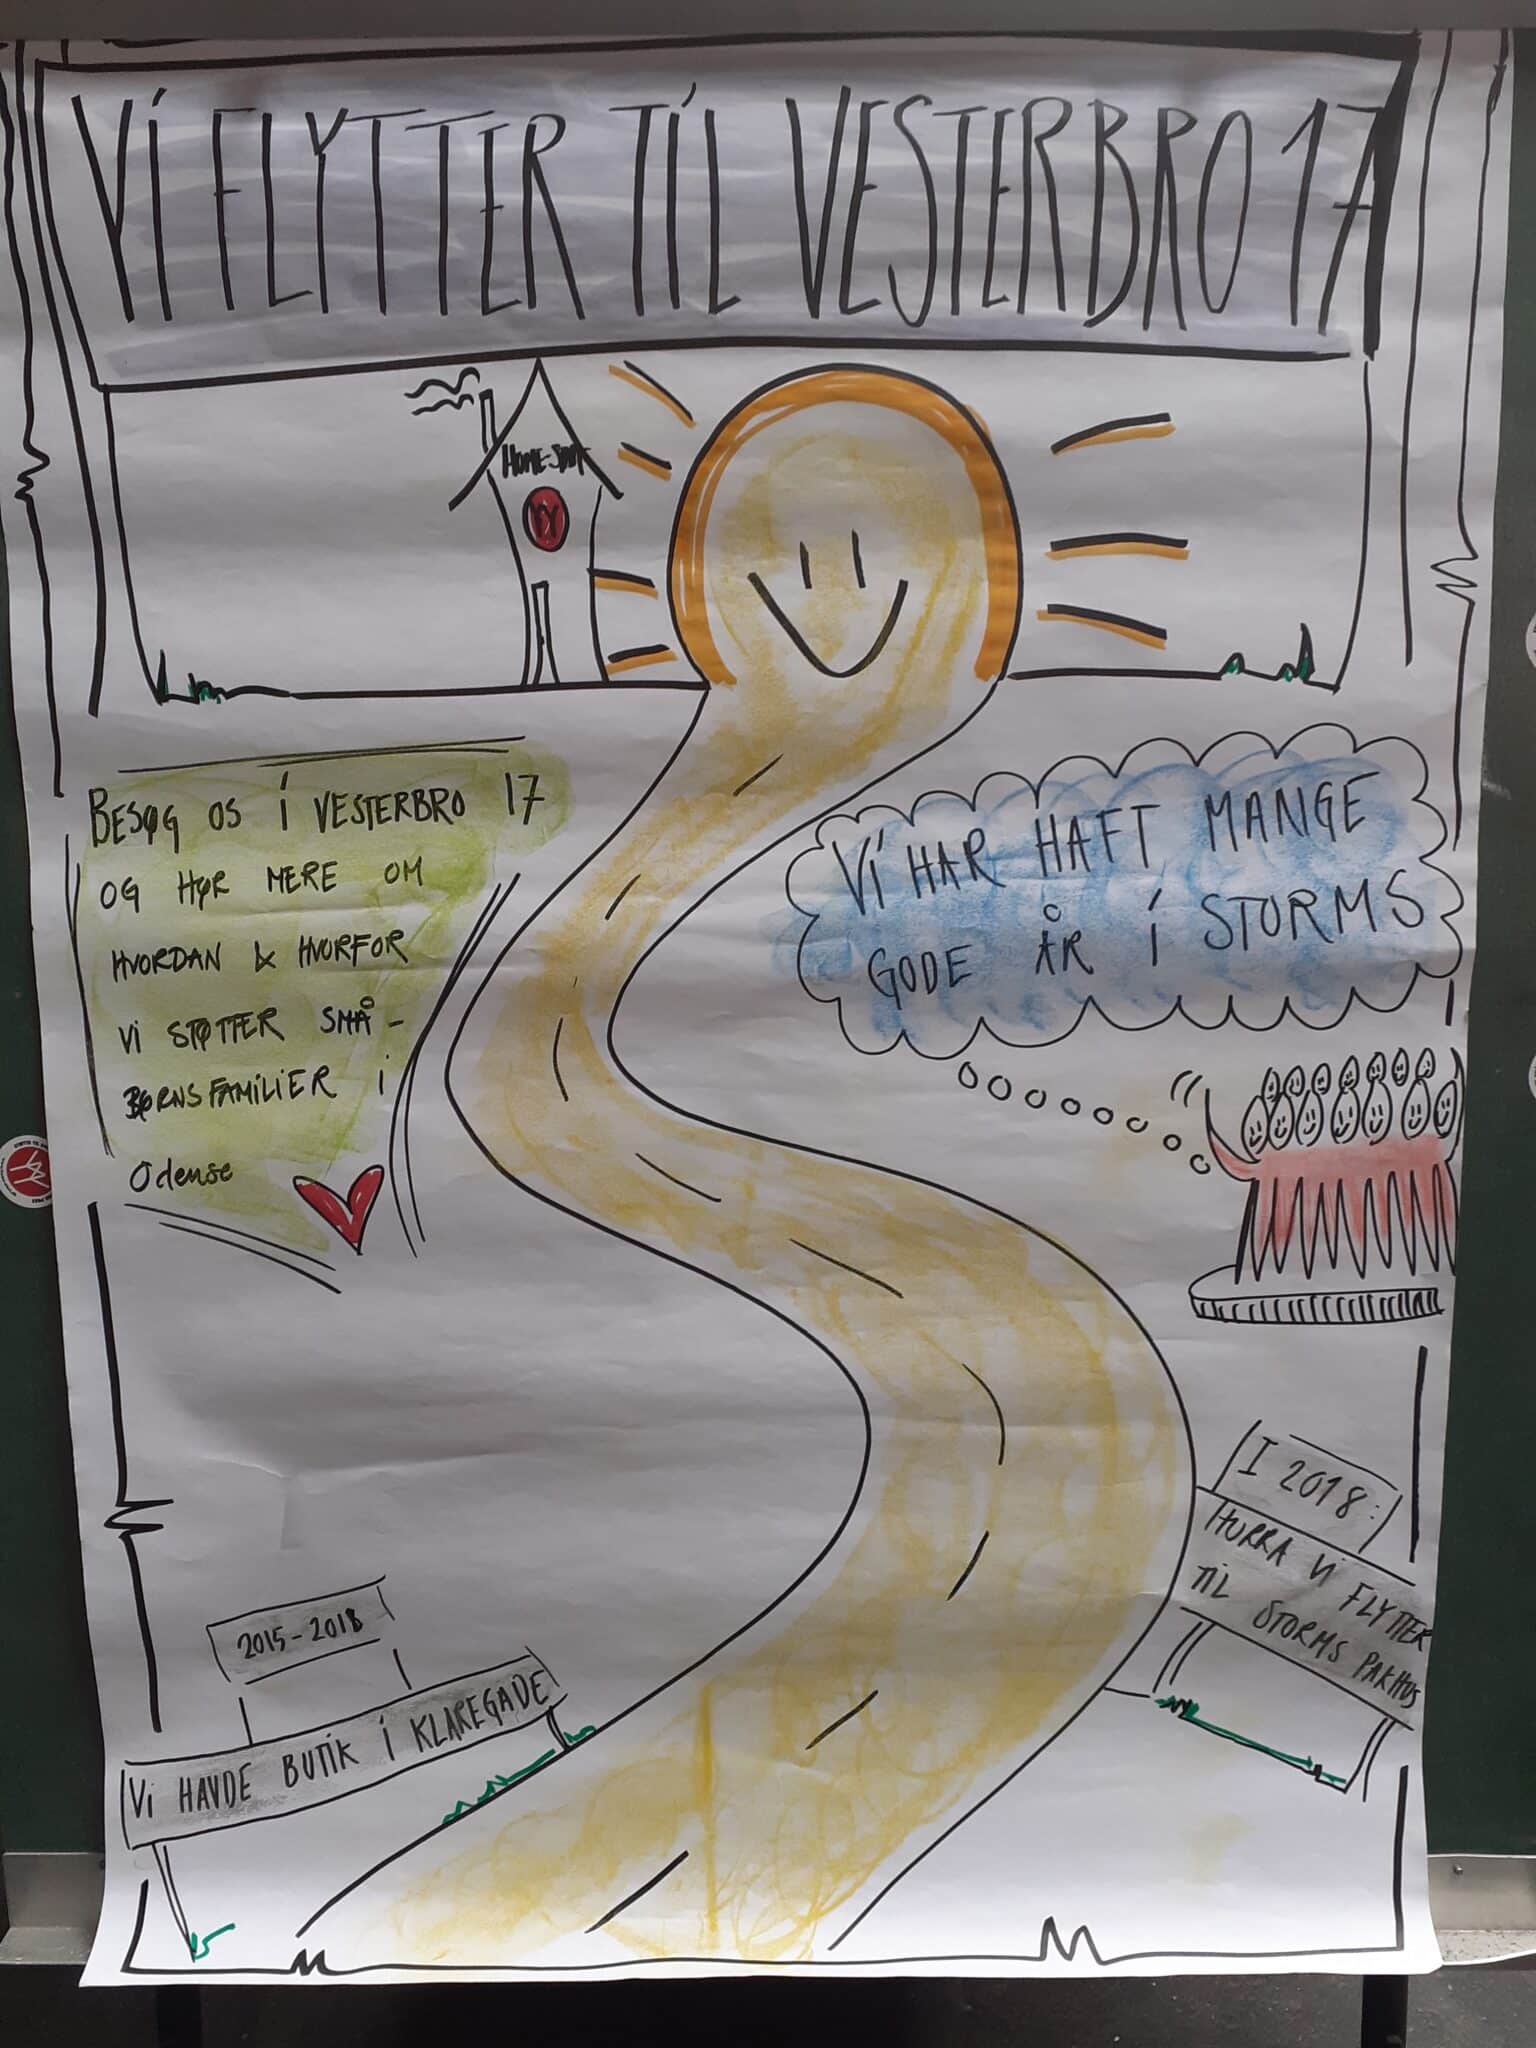 VI FLYTTER TIL VESTERBRO 17
HOME-START
BESØG OS I VESTERBRO 17
OG HØR MERE OM
HVORDAN & HVORFOR
VI STØTTER SMÅ-
BØRNSFAMILIER I
Odense
VI HAR HAFT MANGE
GODE ÅR I STORMS
I 2018:
HURRA VI FLYTTER
TIL STORMS PAKHUS
2015-2018
VI HAVDE BUTIK I KLAREGADE